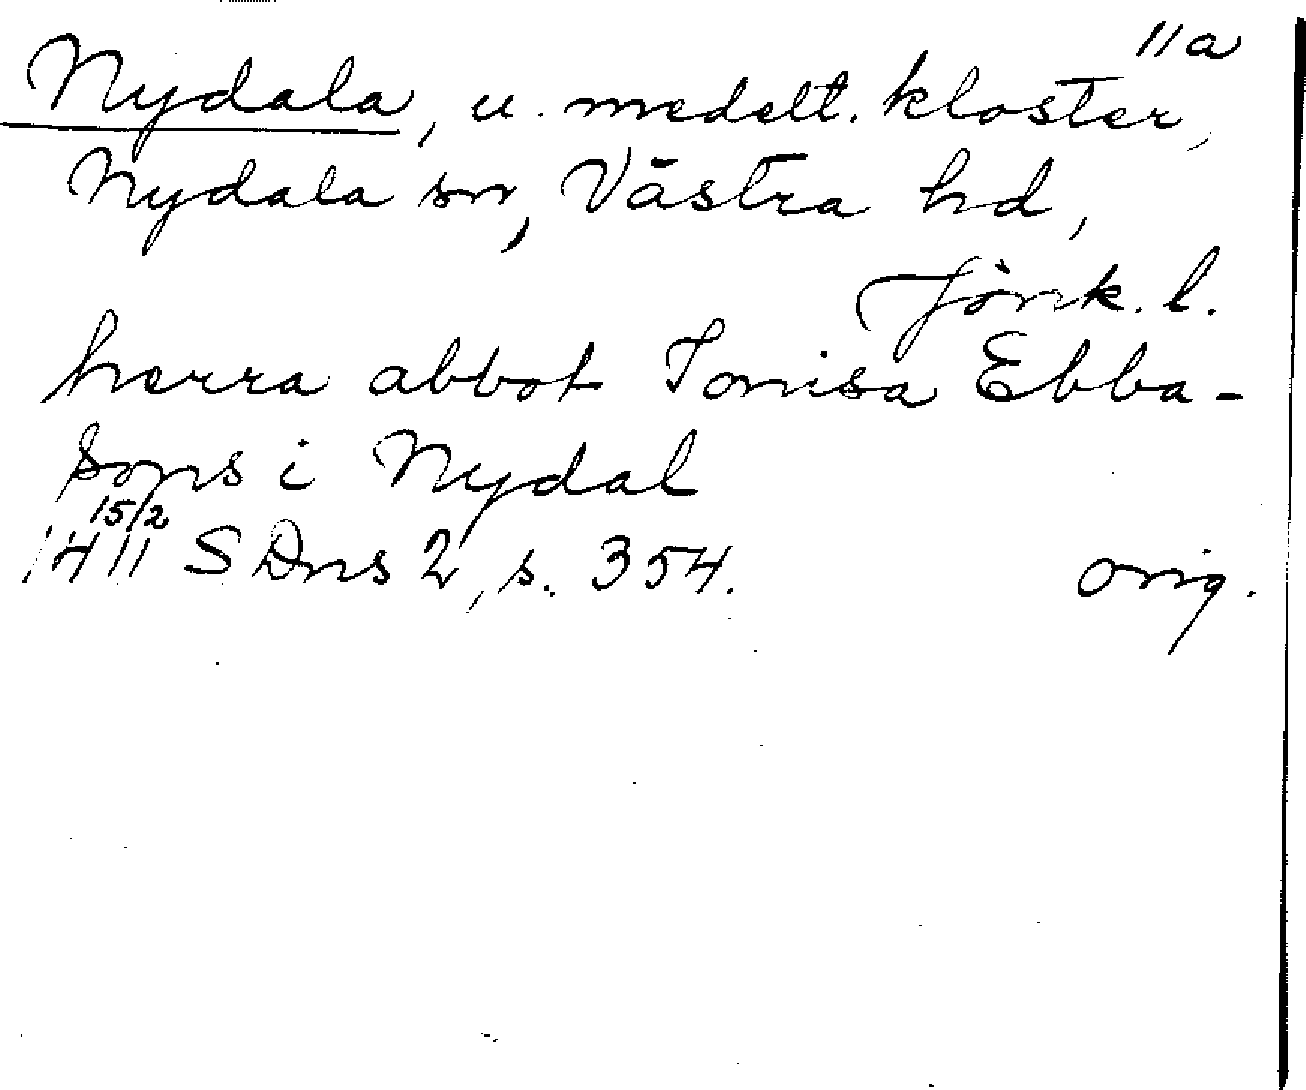 11a
Nydala, u. medelt. kloster,
Nydala sn, Västra hd,
Jönk. l.
herra abbot Tonisa Ebba-
sons i Nydal
15/2
1411 SDns 2, s. 354. orig.